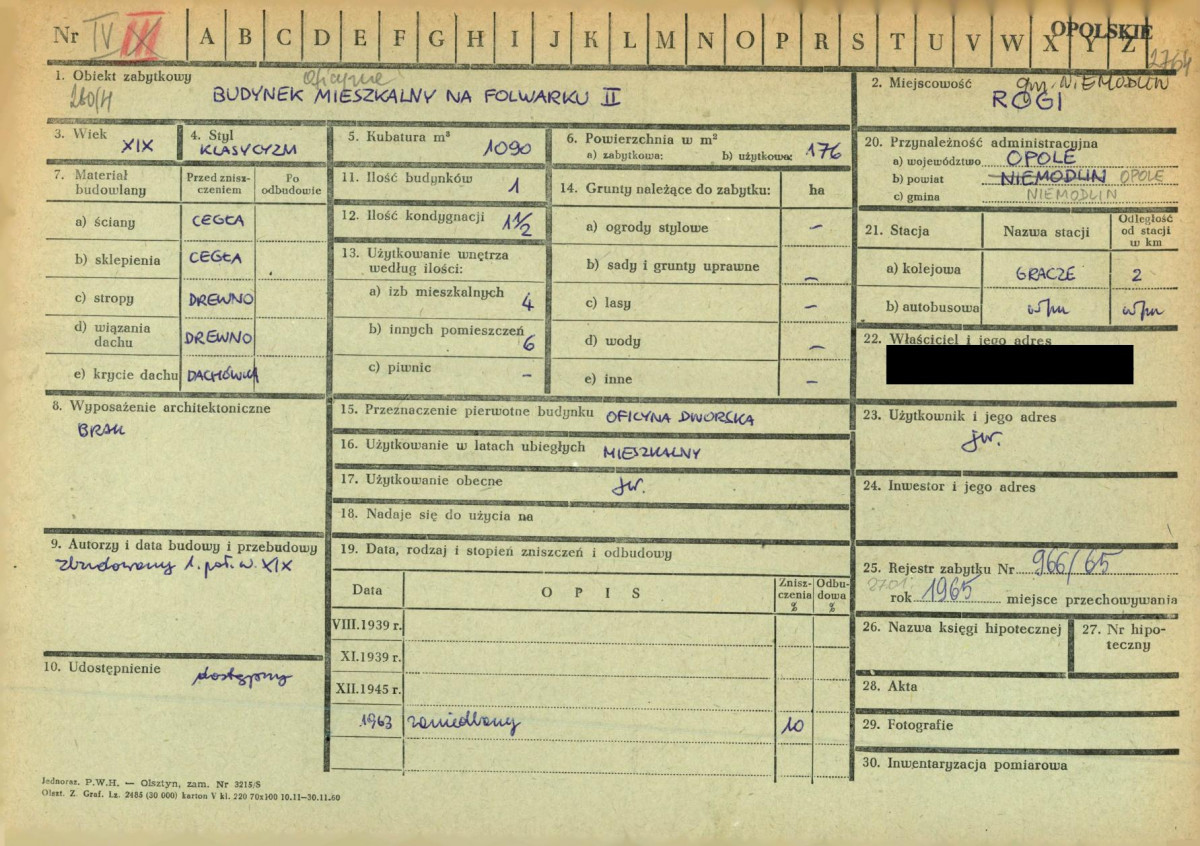 Nr IV III A B C D E F G H I J K L M N O P R S T U V W X Y Z OPOLSKIE
2764
1. Obiekt zabytkowy
oficyna
260/H
BUDYNEK MIESZKALNY NA FOLWARKU II
2. Miejscowość gm. NIEMODLIN
ROGI
3. Wiek XIX
4. Styl KLASYCYZM
5. Kubatura m³ 1090
6. Powierzchnia w m²
a) zabytkowa: b) użytkowa: 176
7. Materiał budowlany
Przed zniszczeniem
Po odbudowie
a) ściany CEGŁA
b) sklepienia CEGŁA
c) stropy DREWNO
d) wiązania dachu DREWNO
e) krycie dachu DACHÓWKA
8. Wyposażenie architektoniczne
BRAK
9. Autorzy i data budowy i przebudowy
zbudowany 1. poł. w. XIX
10. Udostępnienie dostępny
11. Ilość budynków 1
12. Ilość kondygnacji 1 1/2
13. Użytkowanie wnętrza
według ilości:
a) izb mieszkalnych 4
b) innych pomieszczeń 6
c) piwnic –
14. Grunty należące do zabytku: ha
a) ogrody stylowe –
b) sady i grunty uprawne –
c) lasy –
d) wody –
e) inne –
15. Przeznaczenie pierwotne budynku OFICYNA DWORSKA
16. Użytkowanie w latach ubiegłych MIESZKALNY
17. Użytkowanie obecne jw.
18. Nadaje się do użycia na
19. Data, rodzaj i stopień zniszczeń i odbudowy
Data OPIS Zniszczenia % Odbudowa %
VIII.1939 r.
XI.1939 r.
XII.1945 r.
1963 zaniedbany 10
20. Przynależność administracyjna
a) województwo OPOLE
b) powiat NIEMODLIN OPOLE
c) gmina NIEMODLIN
21. Stacja Nazwa stacji Odległość od stacji w km
a) kolejowa GRACZE 2
b) autobusowa w/m w/m
22. Właściciel i jego adres
23. Użytkownik i jego adres
jw.
24. Inwestor i jego adres
25. Rejestr zabytku Nr 966/65
rok 1965 miejsce przechowywania
26. Nazwa księgi hipotecznej
27. Nr hipoteczny
28. Akta
29. Fotografie
30. Inwentaryzacja pomiarowa
Jednoraz. P.W.H. — Olsztyn, zam. Nr 3215/S
Olszt. Z. Graf. Lz. 2485 (30 000) karton V kl. 220 70x100 10.11–30.11.60